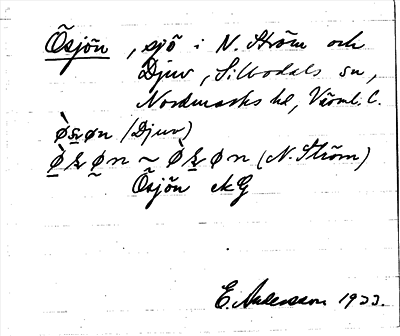 Ösjön, sjö i N. Ström och
Djuv, Silbodals sn,
Nordmarks hd, Värml. l.
(Djuv)
(N. Ström)
Ösjön
E. Andersson 1933.